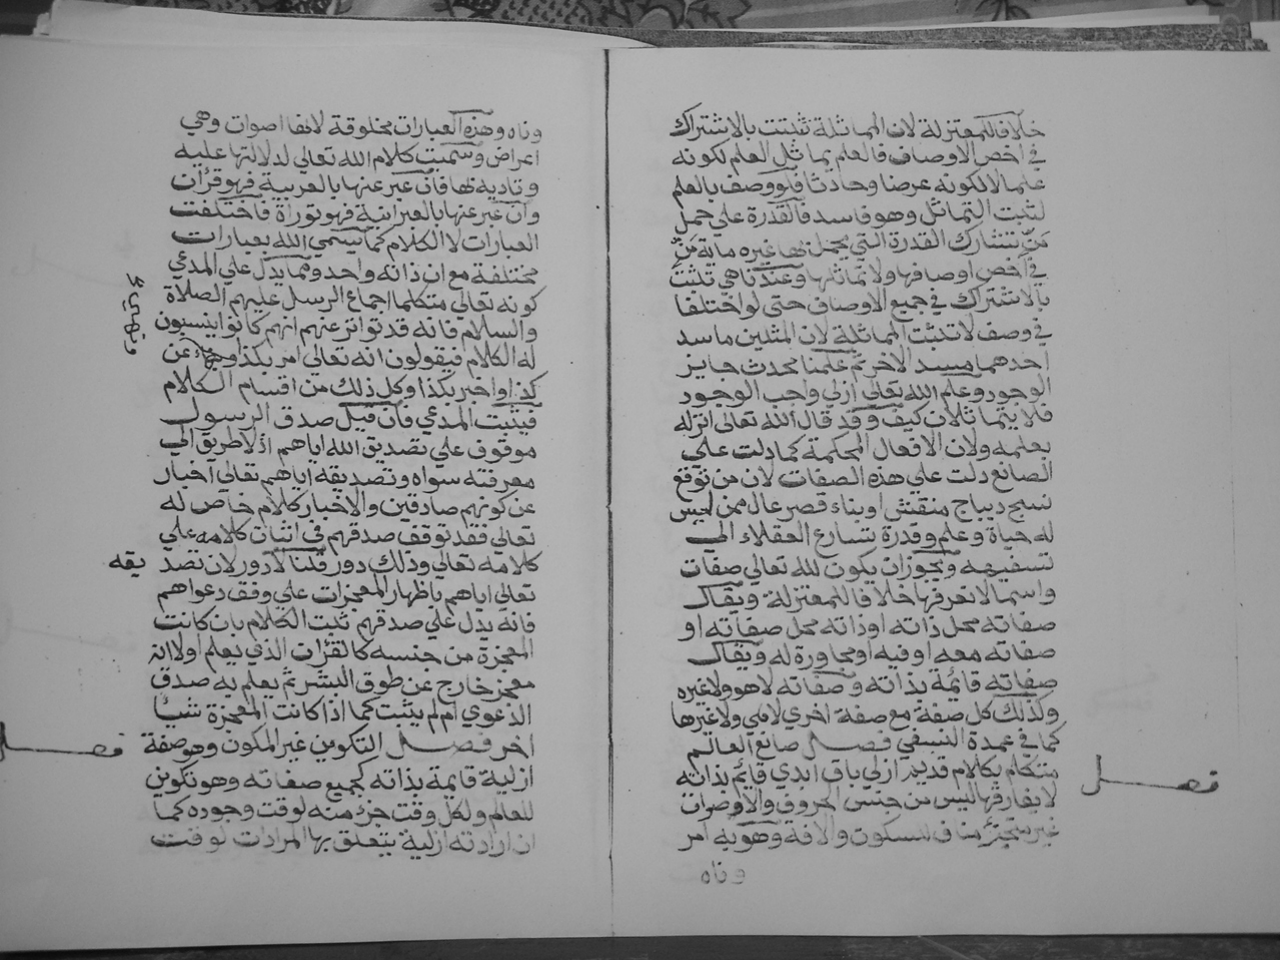 خلافا للمعتزلة لان المماثلة تثبت بالاشتراك
في اخص الاوصاف فالعلم يماثل العلم لكونه
علما لا لكونه عرضا وحادثا فلو وصف بالعلم
لثبت التماثل وهو فاسد فالقدرة علي حمل
مَنٍّ تشارك القدرة التي يحمل بها غيره ماية مَنٍّ
في اخص اوصافها ولا تماثلها وعندنا هي تثبت
بالاشتراك في جميع الاوصاف حتى لو اختلفا
في وصف لا تثبت المماثلة لان المثلين ما سد
احدهما مسد الاخر ثم علمنا محدث جايز
الوجود وعلم الله تعالى ازلي واجب الوجود
فلا يتماثلان كيف وقد قال الله تعالى انزله
بعلمه ولان الافعال المحكمة كما دلت علي
الصانع دلت علي هذه الصفات لان من توقع
نسج ديباج منقش او بناء قصر عال ممن ليس
له حياة وعلم وقدرة تسارع العقلاء الي
تسفيهه ويجوز ان يكون لله تعالي صفات
واسما لا نعرفها خلافا للمعتزلة ويقال
صفاته محل ذاته او ذاته محل صفاته او
صفاته معه او فيه او مجاورة له ويقال
صفاته قائمة بذاته وصفاته لا هو ولا غيره
وكذلك كل صفة مع صفة اخري لا هي ولا غيرها
كما في عمدة النسفي فصل صانع العالم
متكلم بكلام قديم ازلي باق ابدي قايم بذاته
فصل
لا يفارقها ليس من جنس الحروف والاصوات
غير متجزٍ مناف للسكوت والافة وهو به امر
وناه
وناه وهذه العبارات مخلوقة لانها اصوات وهي
اعراض وسميت كلام الله تعالي لدلالتها عليه
وتاديه بها فان عبر عنها بالعربية فهو قرآن
وان عبر عنها بالعبرانية فهو توراة فاختلفت
العبارات لا الكلام كما يسمي الله بعبارات
مختلفة مع ان ذاته واحد ومما يدل علي المدعي
كونه تعالي متكلما اجماع الرسل عليهم الصلاة
والسلام فانه قد تواتر عنهم انهم كانوا ينسبون
له الكلام فيقولون انه تعالي امر بكذا ونهي عن
كذا واخبر بكذا وكل ذلك من اقسام الكلام
فيثبت المدعي فان قيل صدق الرسول
موقوف علي تصديق الله اياهم اذ لا طريق الي
معرفته سواه وتصديقه اياهم تعالي اخبار
عن كونهم صادقين والاخبار كلام خاص له
تعالي فقد توقف صدقهم في اثبات كلامه علي
كلامه تعالي وذلك دور قلنا لا دور لان تصد يقه
تعالي اياهم باظهار المعجزات علي وفق دعواهم
فانه يدل علي صدقهم ثبت الكلام بان كانت
المعجزة من جنسه كالقران الذي يعلم اولا انه
معجز خارج عن طوق البشر ثم يعلم به صدق
الدعوي ام لم يثبت كما اذا كانت المعجزة شيا
اخر فصل التكوين غير المكون وهو صفة
فصل
ازلية قايمة بذاته كجميع صفاته وهو تكوين
للعالم ولكل وقت جزء منه لوقت وجوده كما
ان ارادته ازلية يتعلق بها المرادات لوقت